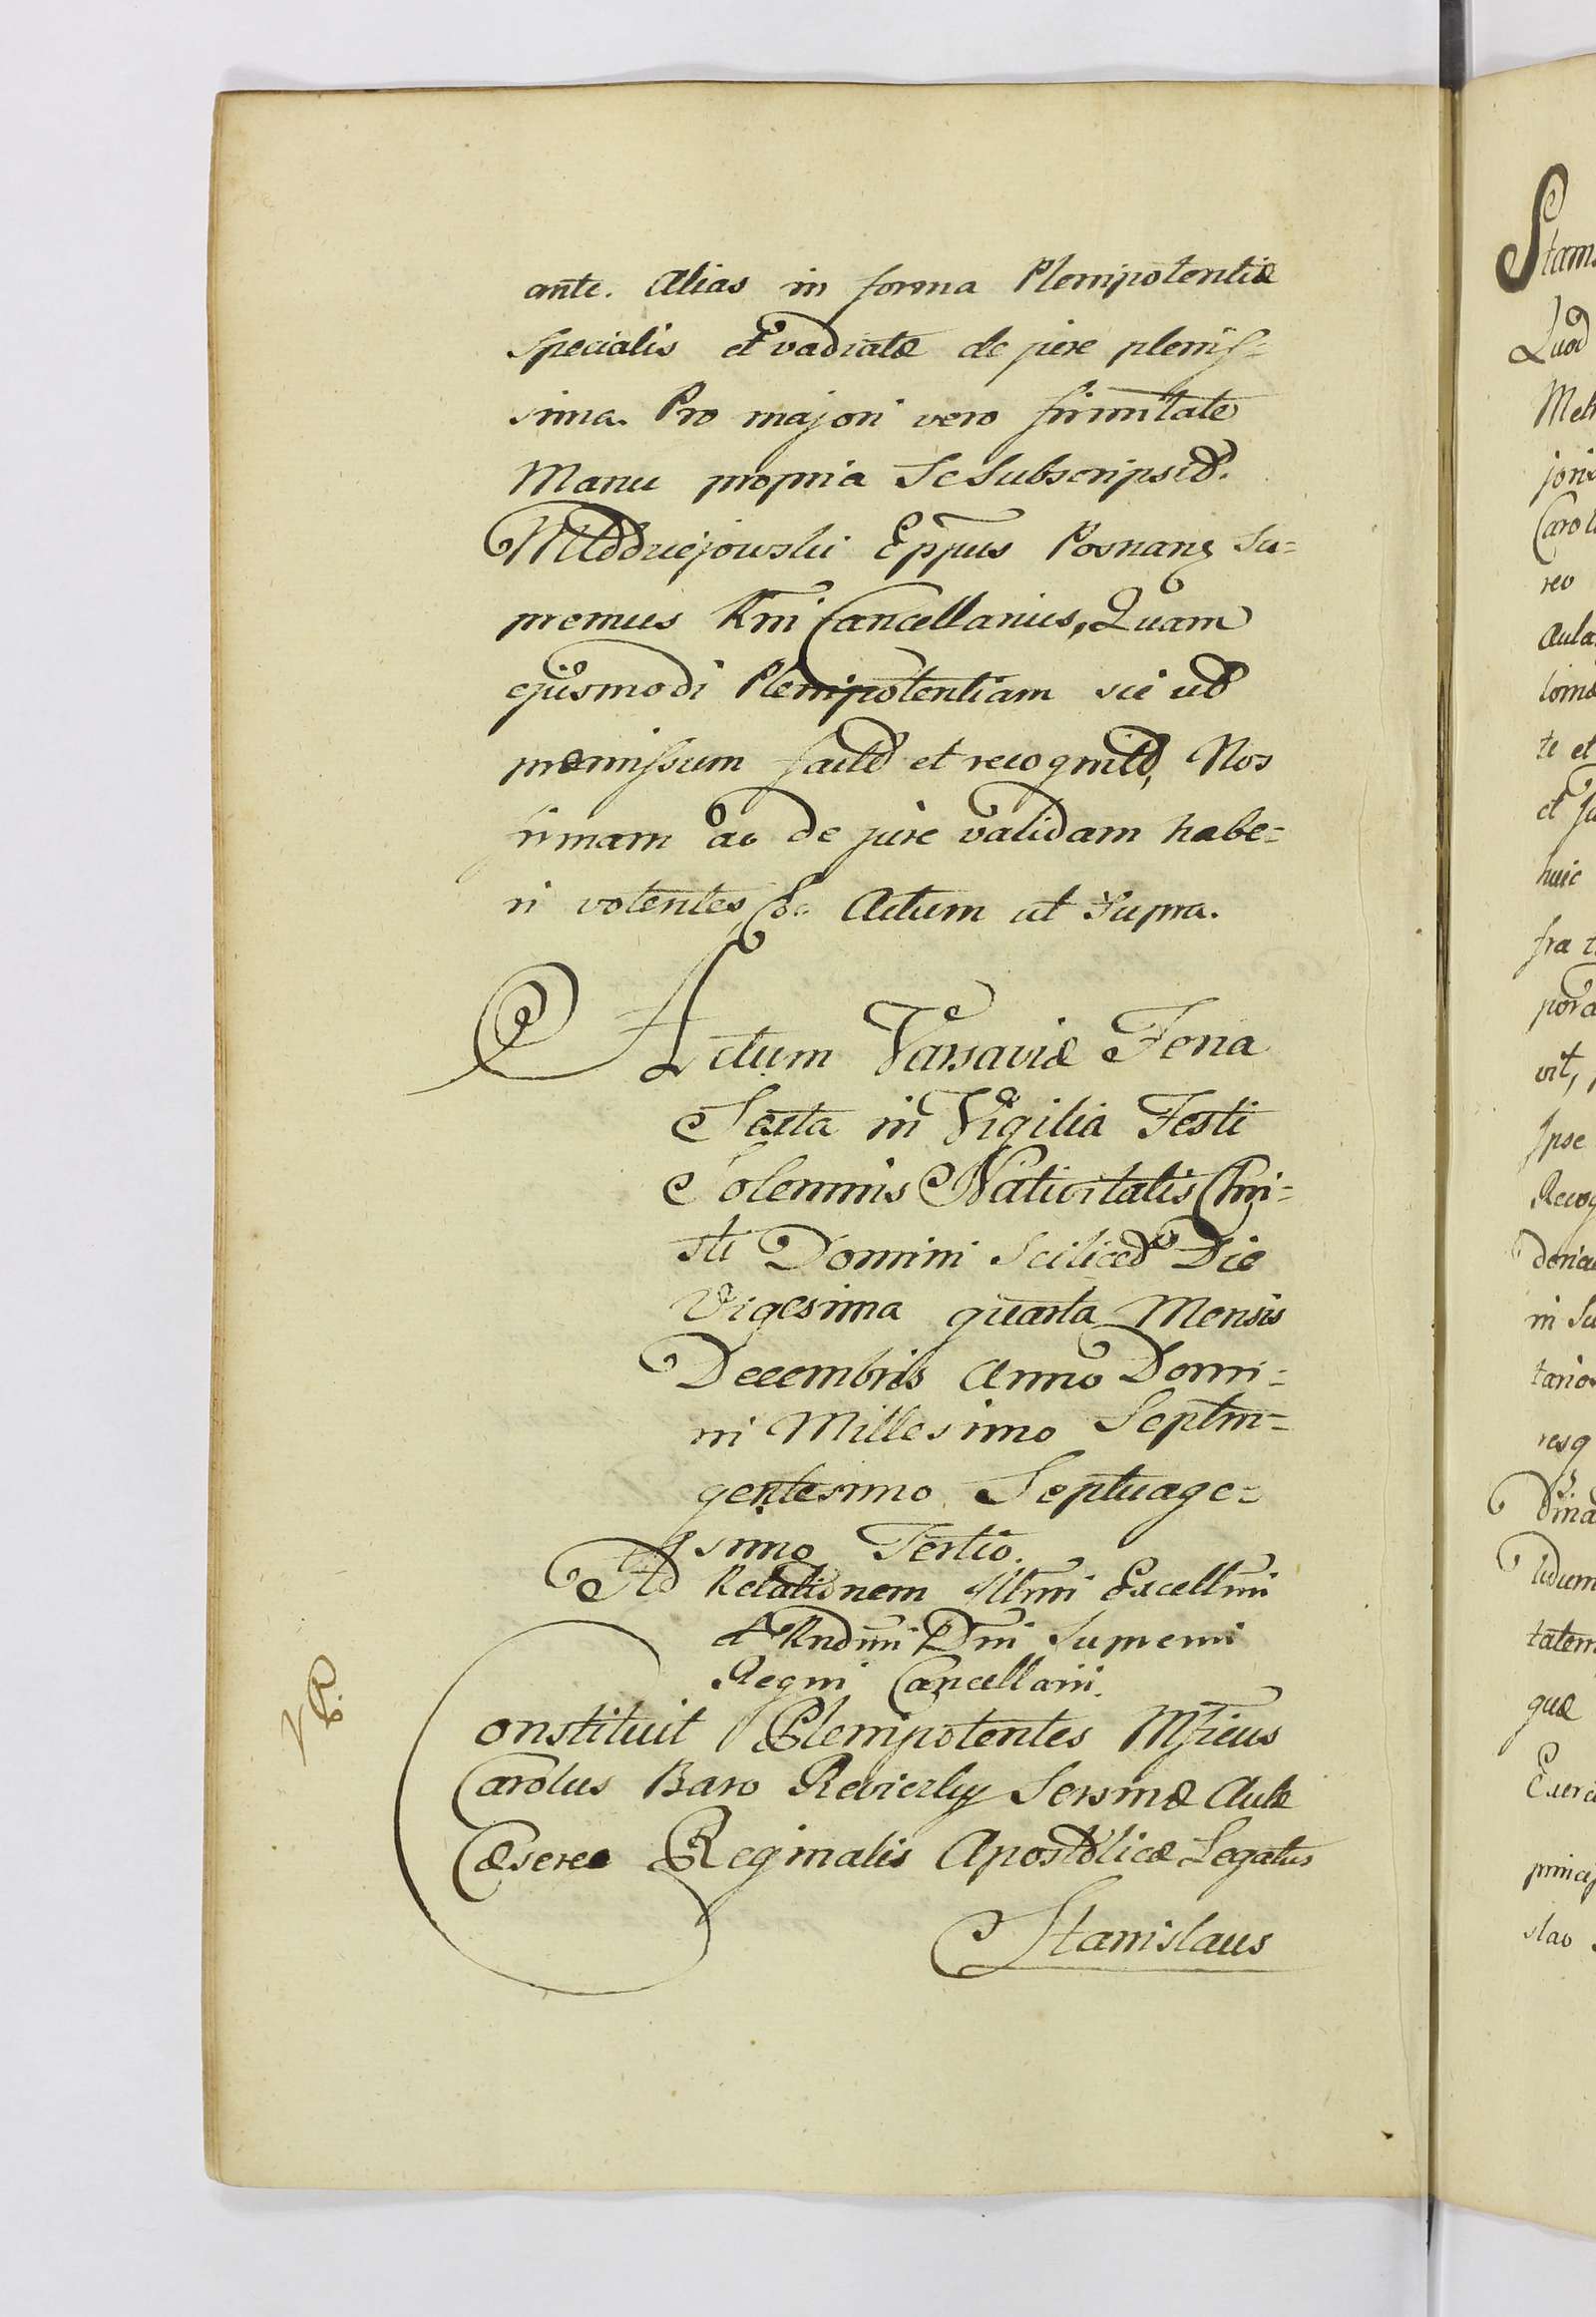 ante. Alias in forma Plenipotentiæ
specialis et vadiatæ de jure plenis=
sima. Pro majori vero firmitate
Manu propria Se Subscripsit.
Młodziejowski Eppus Posnan Su=
premus Rni Cancellarius, Quam
ejusmodi Plenipotentiam sic ut
præmissum factam et recognitam, Nos
firmam ac de jure validam habe=
ri volentes, &c. Actum ut Supra.
Actum Varsaviæ Feria
Sexta in Vigilia Festi
Solemnis Nativitatis Chri=
sti Domini Scilicet Die
Vigesima quarta Mensis
Decembris Anno Domi=
ni Millesimo Septin=
gentesimo Septuage=
simo Tertio.
Ad Relationem Illmi Excellmi
et Rndmi Dni Supremi
Regni Cancellarii.
Constituit Plenipotentes Mficus
Carolus Baro Reviczky Sersmæ Aulæ
Cæsereo Reginalis Apostolicæ Legatus
Stanislaus
Stani
Quod
joris
Carol
reo
Aulæ
te et
huic
fra
vit,
Ipse
Recog
in Su
tatem
quæ
princip
slao